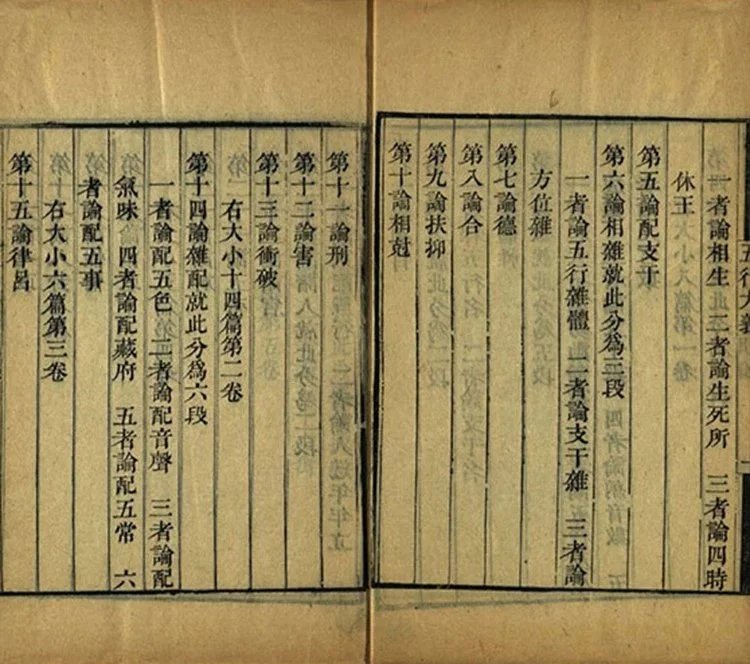 五行大義
一者論相生 二者論生死所 三者論四時
休王
第五論配支干
第六論相雜就此分爲三段
一者論五行雜體 二者論支干雜 三者論
方位雜
第七論德
第八論合
第九論扶抑
第十論相尅
第十一論刑
第十二論害
第十三論衝破
右大小十四篇第二卷
第十四論雜配就此分爲六段
一者論配五色 二者論配音聲 三者論配
氣味 四者論配藏府 五者論配五常 六
者論配五事
右大小六篇第三卷
第十五論律呂